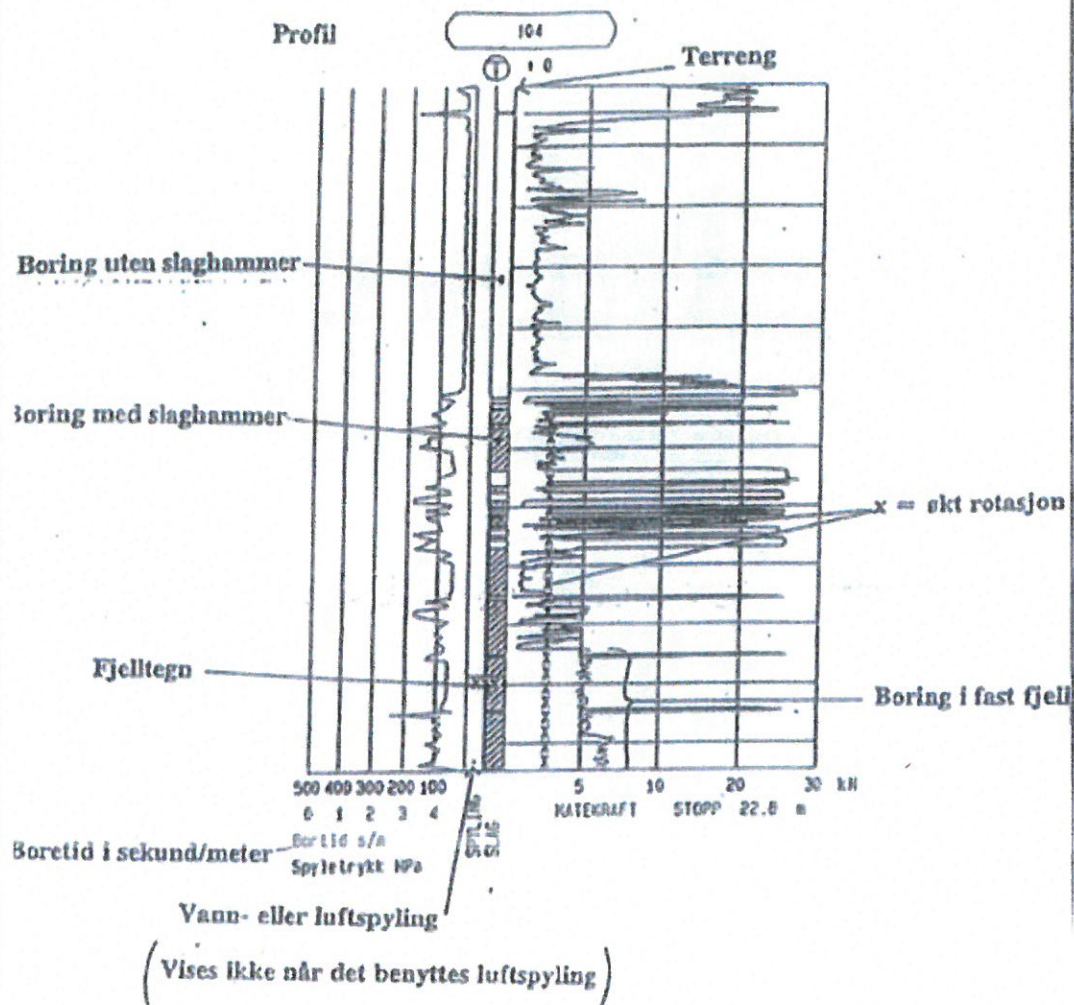 Profil
104
T
+ 0
Terreng
Boring uten slaghammer
Boring med slaghammer
x = økt rotasjon
Fjelltegn
Boring i fast fjell
500 400 300 200 100
0 1 2 3 4
SPYLING
SLAG
5 10 20 30 kN
MATEKRAFT STOPP 22.8 m
Boretid i sekund/meter
Bortid s/m
Spyletrykk MPa
Vann- eller luftspyling
(Vises ikke når det benyttes luftspyling)